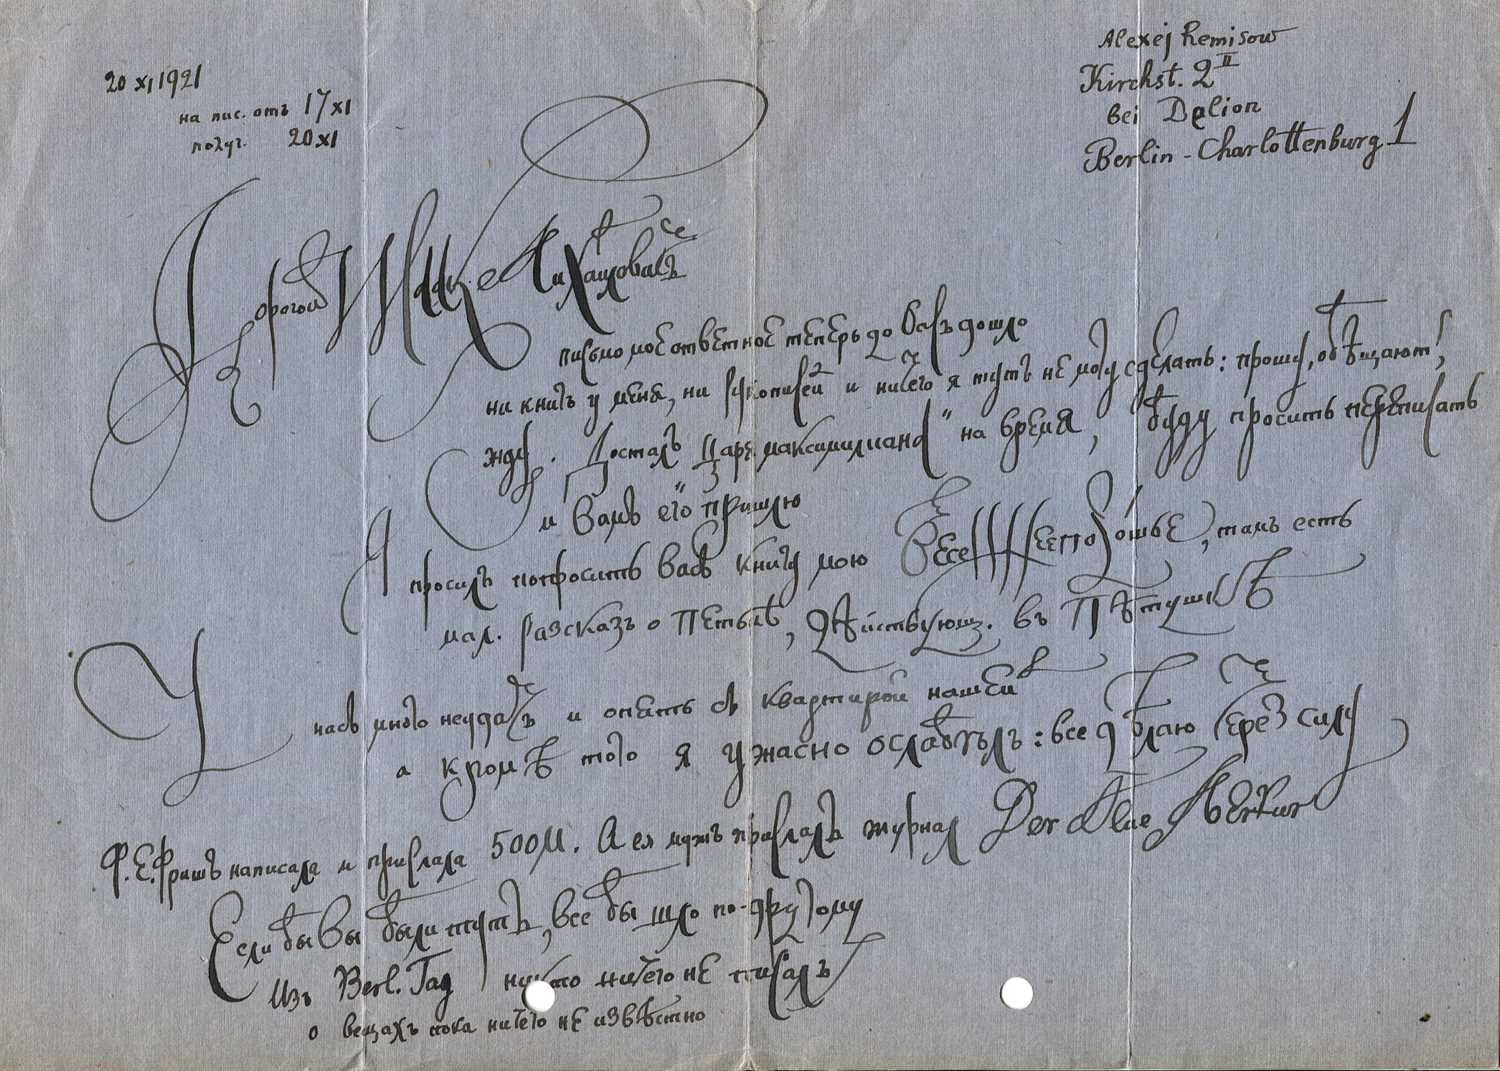 20 XI 1921
на пис. отъ 17 XI
получ. 20 XI
Alexej Remisow
Kirchst. 2 II
bei Delion
Berlin-Charlottenburg 1
Дорогой Исаакъ Михайловичъ
письмо мое ответное теперь до Васъ дошло
ни книгъ у меня, ни рукописей и ничего я тутъ не могу сдѣлать: прошу, обѣщают,
жду. Досталъ „Царя Максимилиана" на время, буду просить переписать
и Вамъ его пришлю
Я просилъ попросить Васъ книгу мою Весеннее порошье, тамъ есть
мал. разсказъ о Петькѣ, дѣйствующ. въ Пѣтушкѣ
У насъ много неудачъ и опять съ квартирой нашей
а кромѣ того я ужасно ослабѣлъ: все дѣлаю через силу
Ф. Е. Фришъ написала и прислала 500 М. А ея мужъ прислалъ журнал Der Neue Merkur
Если бы Вы были тутъ, все бы шло по-другому
Изъ Berl. Tag никто ничего не писалъ
о вещахъ пока ничего не извѣстно